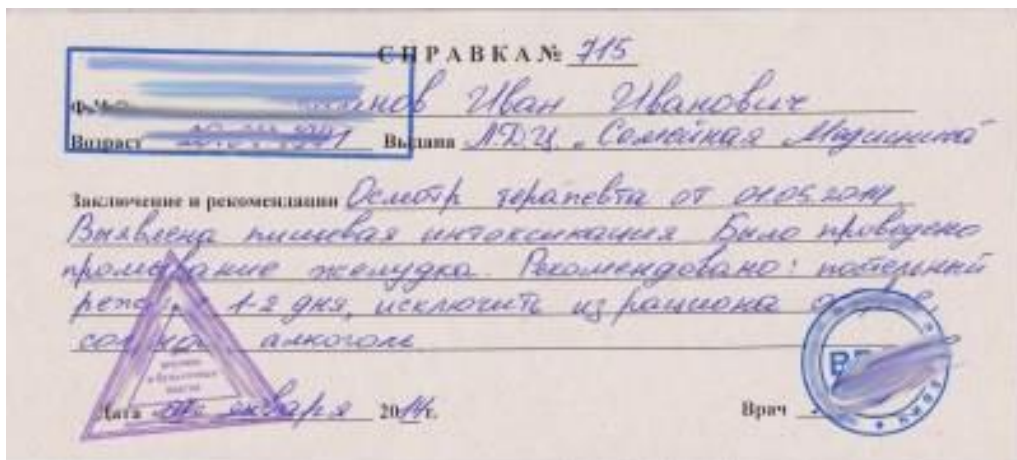 СПРАВКА № 715
Иван Иванович
Возраст Выдана ЛДЦ „Семейная Медицина"
Заключение и рекомендации Осмотр терапевта от 01.05.2014
Выявлена пищевая интоксикация Было проведено
промывание желудка. Рекомендовано: постельный
1-2 дня, исключить из рациона
алкоголь
Дата января 2014г. Врач